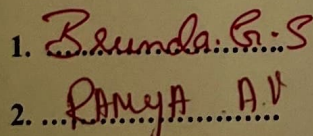 1. Brunda. G.S
2. RAMYA A.V